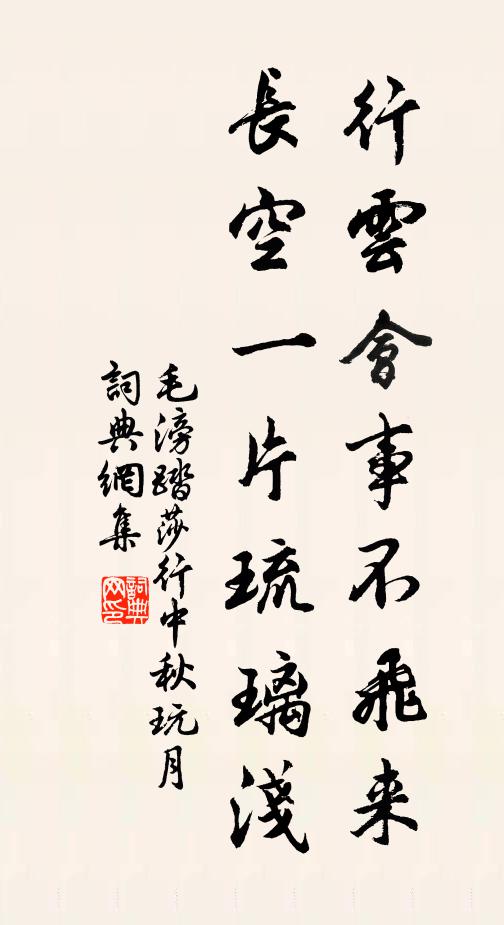 行雲會事不飛来
長空一片琉璃淺
毛滂踏莎行中秋玩月
詞典網集
詞典網印